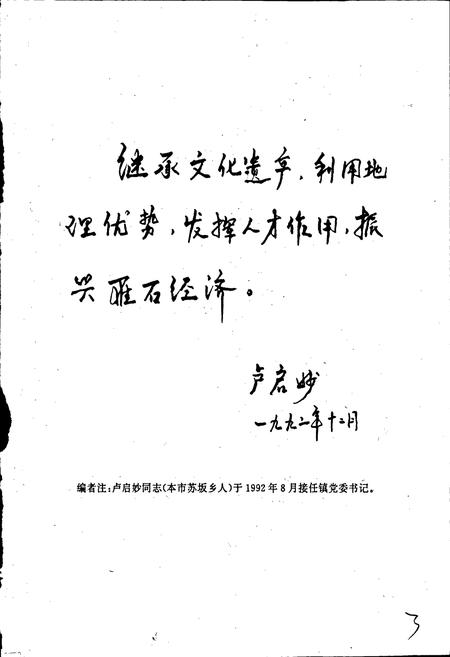 继承文化遗产,利用地
理优势,发挥人才作用,振
兴雁石经济。
卢启妙
一九九二年十二月
编者注:卢启妙同志(本市苏坂乡人)于1992年8月接任镇党委书记。
3